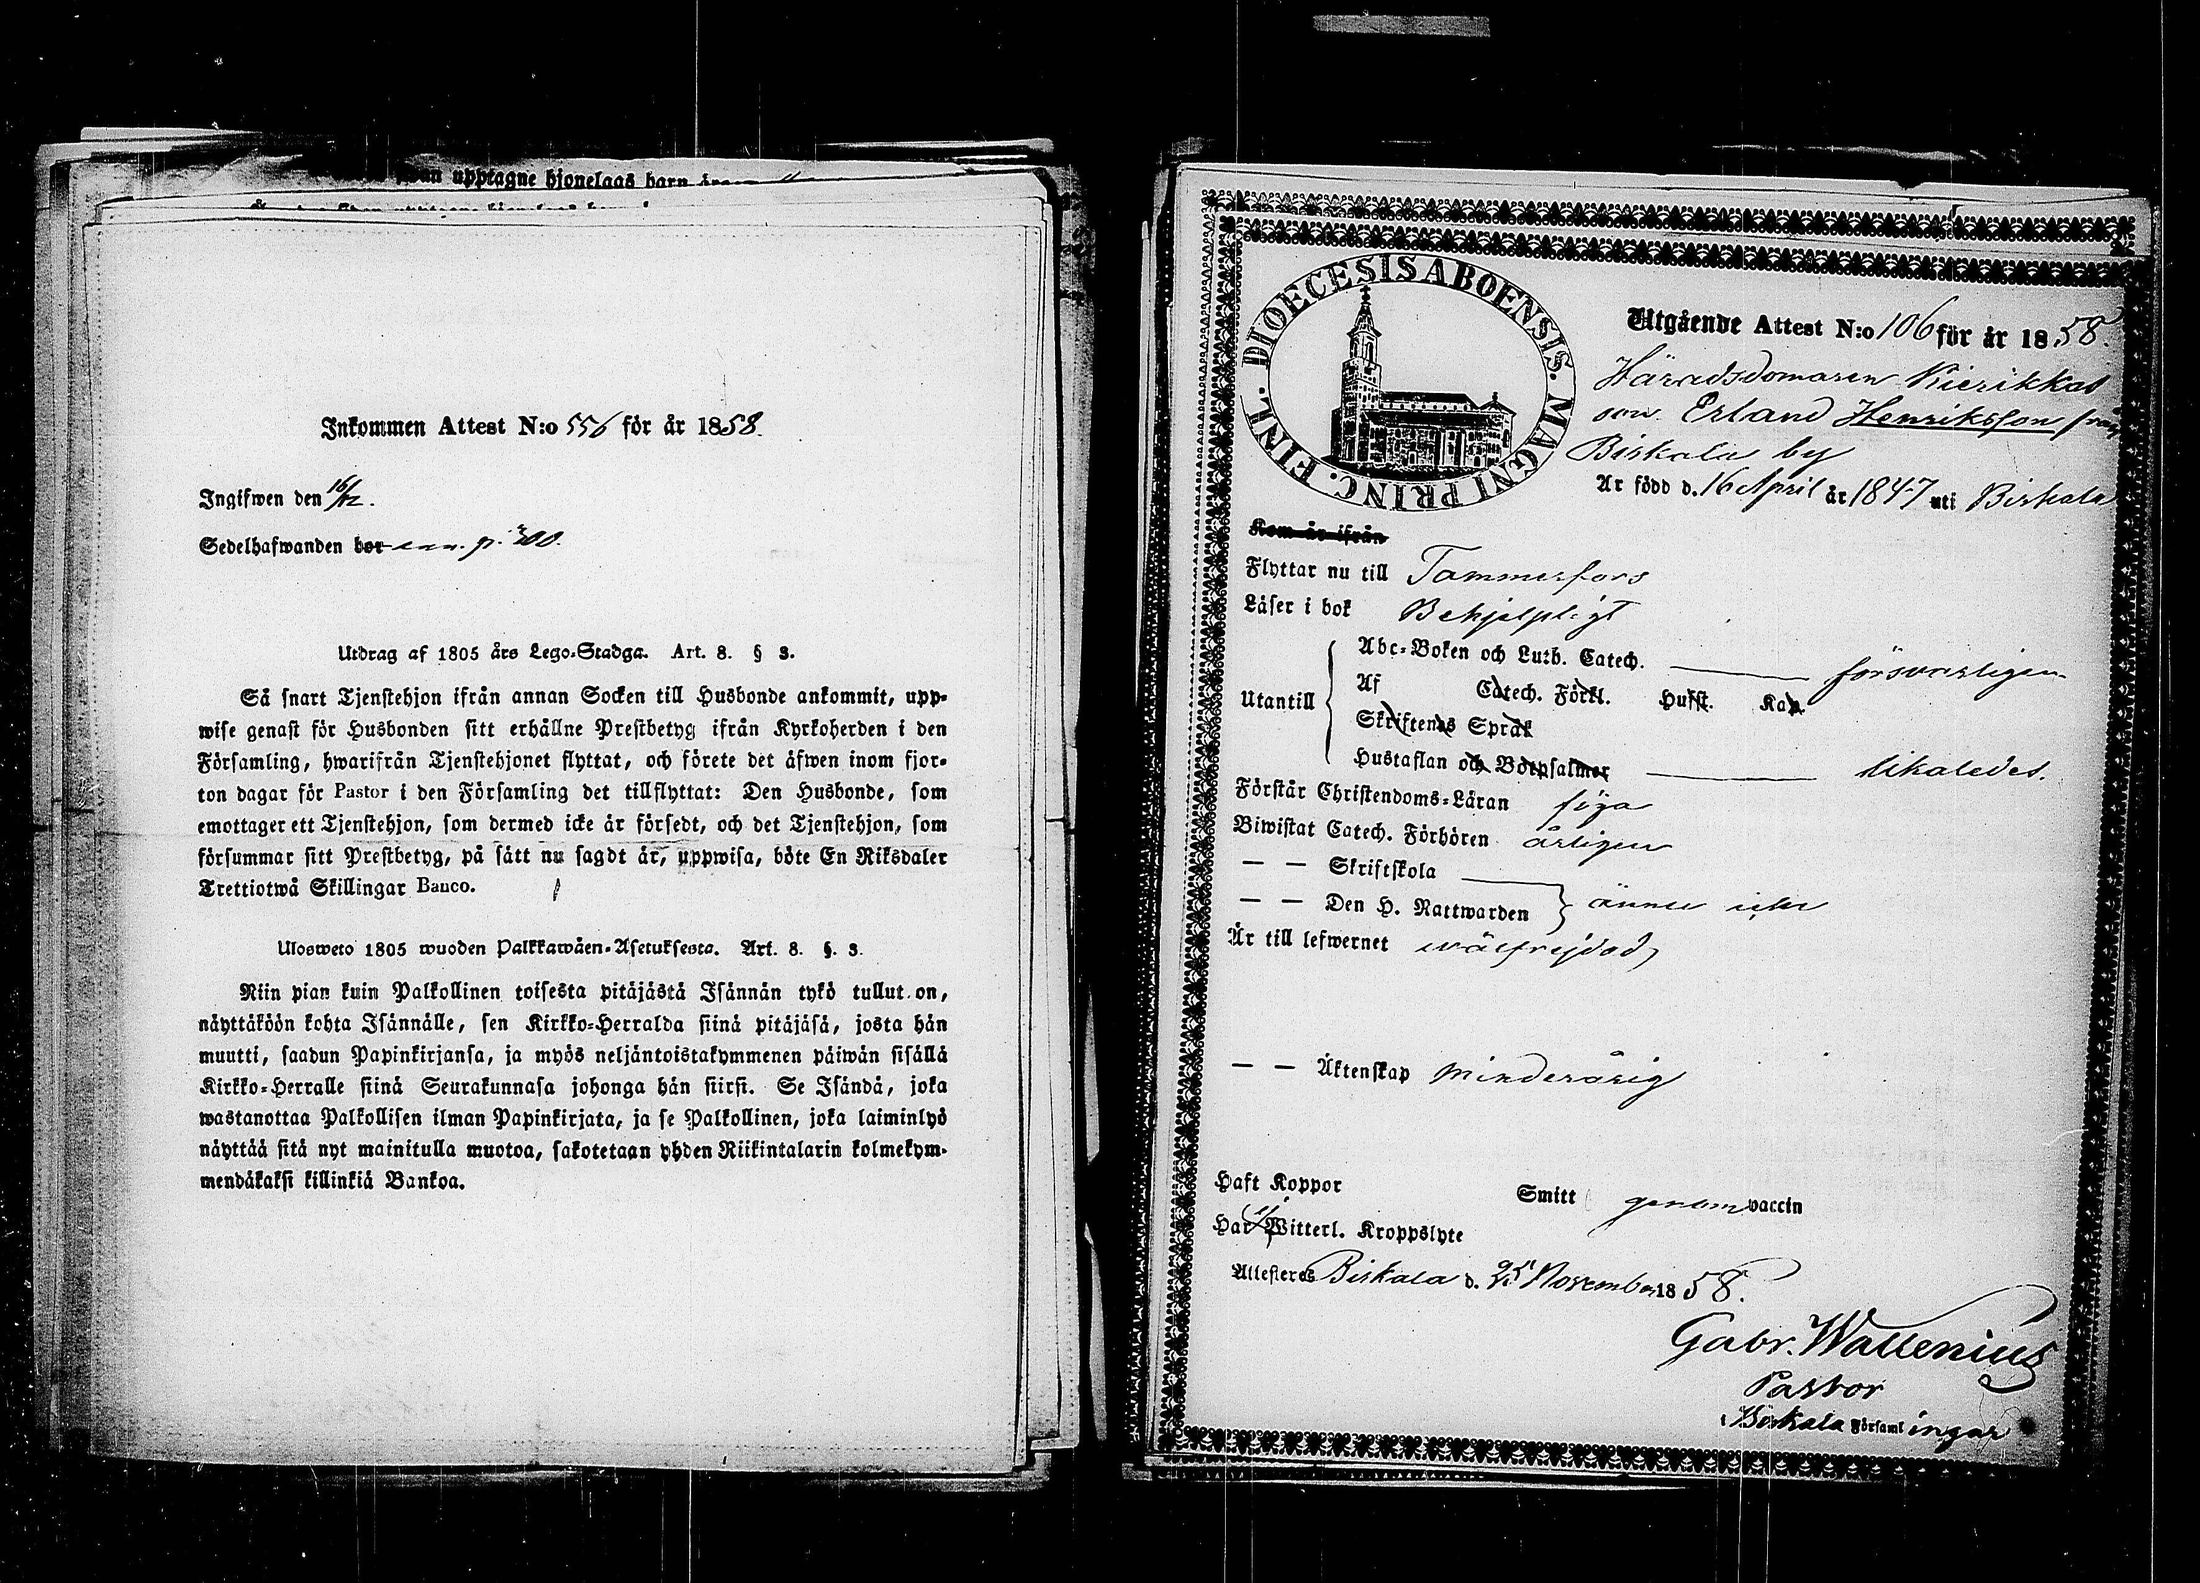 upptagne hjonelags barn
Inkommen Attest N:o 556 för år 1858.
Ingifwen den 16/12.
Sedelhafwanden bor p. 300.
Utdrag af 1805 års Lego-Stadga. Art. 8. § 3.
Så snart Tjenstehjon ifrån annan Socken till Husbonde ankommit, upp-
wise genast för Husbonden sitt erhållne Prestbetyg ifrån Kyrkoherden i den
Församling, hwarifrån Tjenstehjonet flyttat, och förete det äfwen inom fjor-
ton dagar för Pastor i den Församling det tillflyttat: Den Husbonde, som
emottager ett Tjenstehjon, som dermed icke är försedt, och det Tjenstehjon, som
försummar sitt Prestbetyg, på sätt nu sagdt är, uppwisa, böte En Riksdaler
Trettiotwå Skillingar Banco.
Ulosweto 1805 wuoden Palkkawäen-Asetuksesta. Art. 8. §. 3.
Niin pian kuin Palkollinen toisesta pitäjästä Isännän tykö tullut on,
näyttäköön kohta Isännälle, sen Kirkko-Herralda siinä pitäjäsä, josta hän
muutti, saadun Papinkirjansa, ja myös neljäntoistakymmenen päiwän sisällä
Kirkko-Herralle siinä Seurakunnasa johonga hän siirsi. Se Isändä, joka
wastanottaa Palkollisen ilman Papinkirjata, ja se Palkollinen, joka laiminlyö
näyttää sitä nyt mainitulla muotoa, sakotetaan yhden Riikintalarin kolmekym-
mendäkaksi killinkiä Bankoa.
DIOECESIS ABOENSIS. MAGNI PRINC. FINL.
Utgående Attest N:o 106 för år 1858.
Häradsdomaren Kierikkas
son Erland Henriksson från
Birkala by
Är född d. 16 April år 1847 uti Birkala
Kom år ifrån
Flyttar nu till Tammerfors
Läser i bok Behjelpligt
Utantill
Abc-Boken och Luth. Catech. försvarligen
Af Catech. Förkl. Husst. Kap.
Skriftenes Språk
Hustaflan och Botpsalmer likaledes.
Förstår Christendoms-Läran
Biwistat Catech. Förhören årligen
— — Skriftskola
— — Den H. Nattwarden ännu icke
Är till lefwernet wälfrejdad
— — Äktenskap minderårig
Haft Koppor Smitt genom vaccin
Har Witterl. Kroppslyte
Attesteras Birkala d. 25 November 1858.
Gabr. Wallenius
Pastor
i Birkala Församlingar